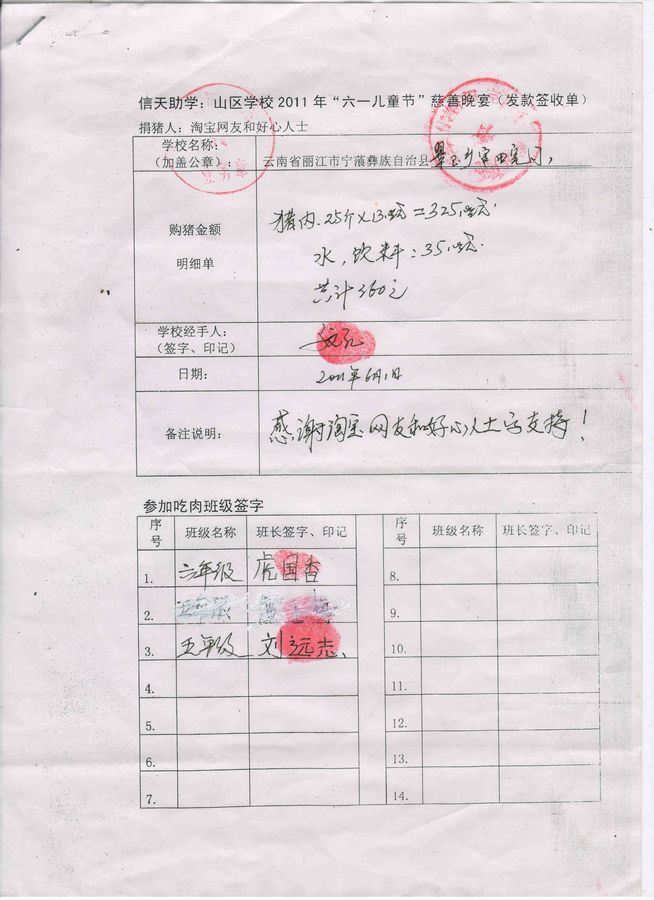 信天助学：山区学校2011年“六一儿童节”慈善晚宴（发款签收单）
捐猪人：淘宝网友和好心人士
学校名称：
（加盖公章）：
云南省丽江市宁蒗彝族自治县翠玉乡官田完小
购猪金额
明细单
猪肉.25斤×13.00元=325.00元
水，饮料=35.00元
共计360元
学校经手人：
（签字、印记）
日期：
2011年6月1日
备注说明：
感谢淘宝网友和好心人士的支持！
参加吃肉班级签字
序号 班级名称 班长签字、印记 序号 班级名称 班长签字、印记
1. 六年级 虎国香 8.
2. 9.
3. 五年级 刘远志 10.
4. 11.
5. 12.
6. 13.
7. 14.